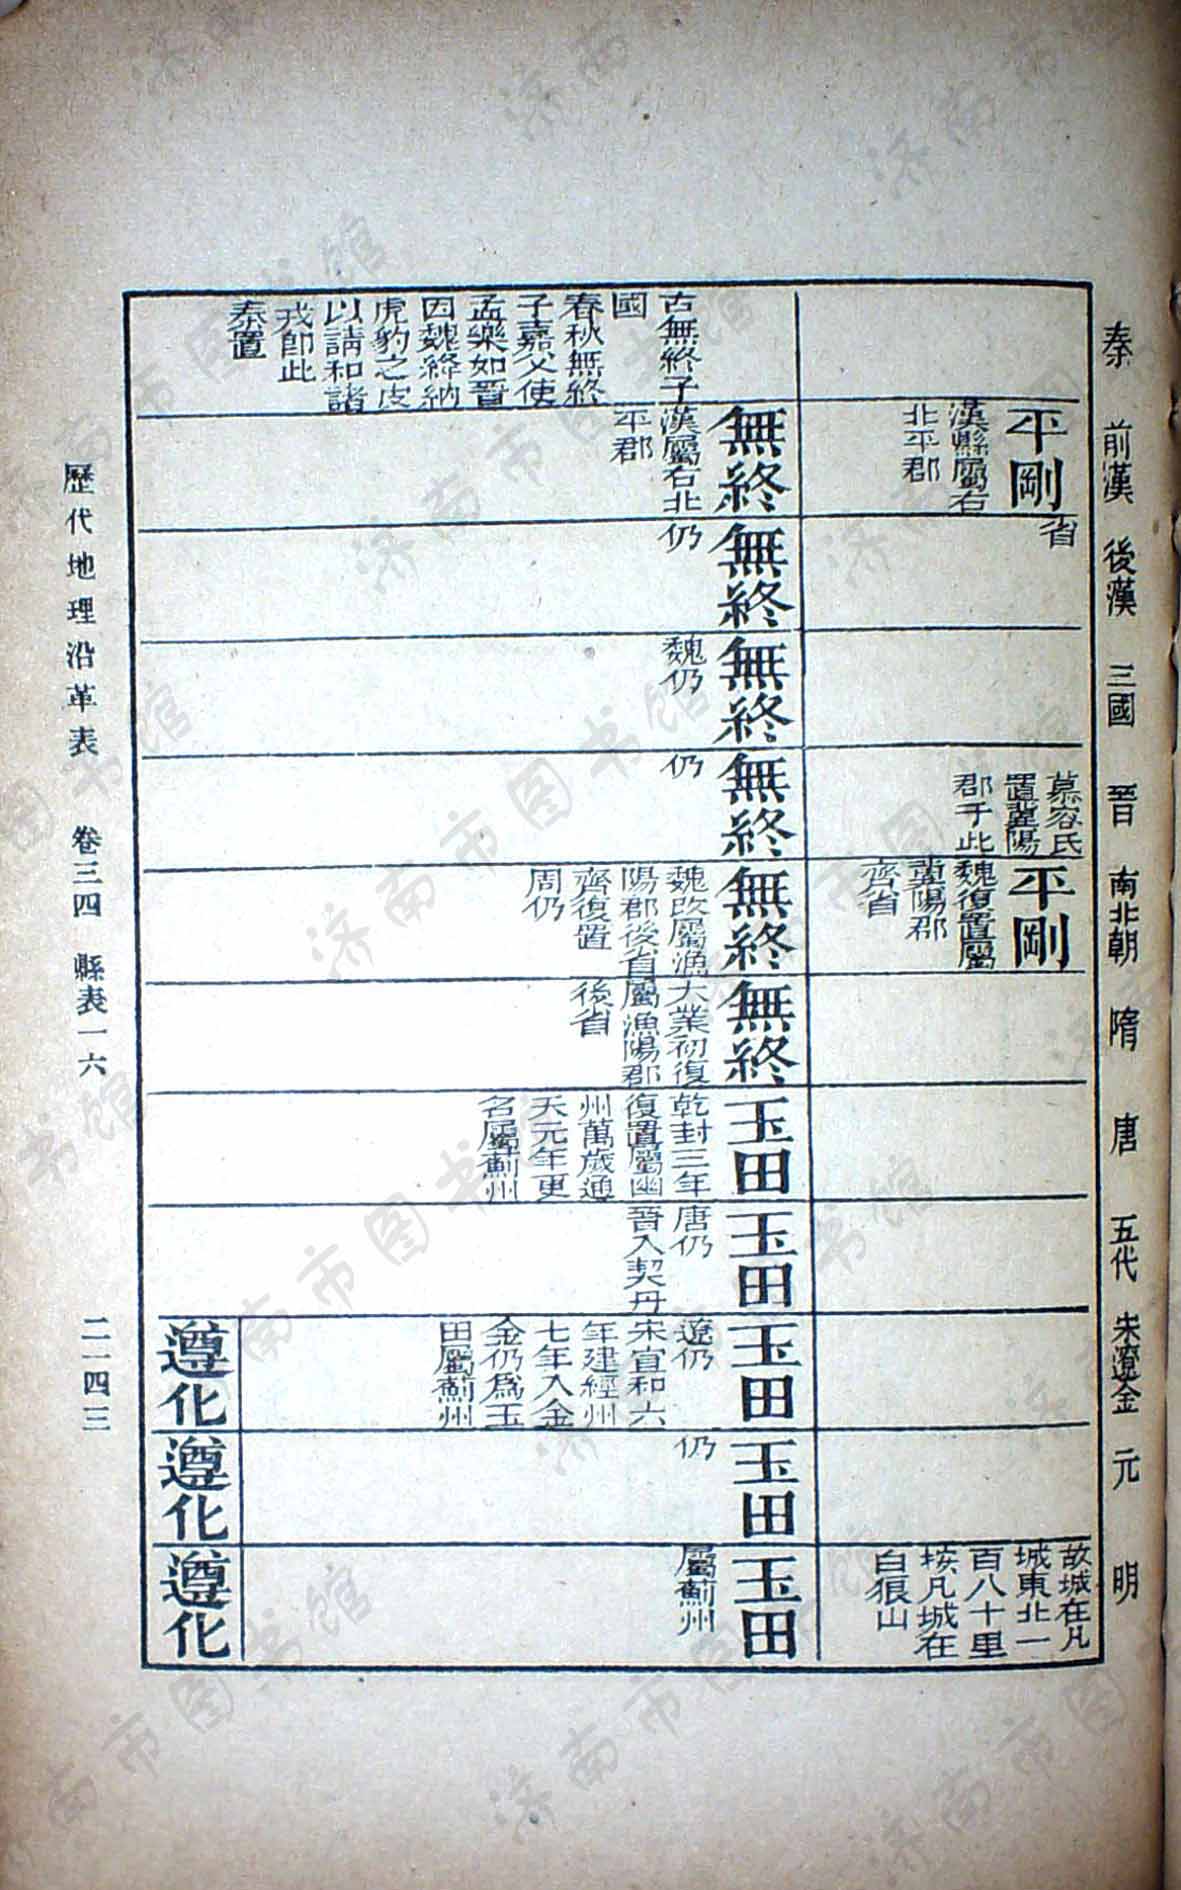 秦
前漢
後漢
三國
晉
南北朝
隋
唐
五代
宋遼金
元
明
平剛
漢縣屬右
北平郡
省
慕容氏
置冀陽
郡于此
平剛
魏復置屬
冀陽郡
齊省
故城在凡
城東北一
百八十里
按凡城在
白狼山
古無終子
國
春秋無終
子嘉父使
孟樂如晉
因魏絳納
虎豹之皮
以請和諸
戎卽此
秦置
無終
漢屬右北
平郡
無終
仍
無終
魏仍
無終
仍
無終
魏改屬漁
陽郡後省
齊復置
周仍
無終
大業初復
屬漁陽郡
後省
玉田
乾封三年
復置屬幽
州萬歲通
天元年更
名屬薊州
玉田
唐仍
晉入契丹
玉田
遼仍
宋宣和六
年建經州
七年入金
金仍爲玉
田屬薊州
玉田
仍
玉田
屬薊州
遵化
遵化
遵化
歷代地理沿革表 卷三四 縣表一六 二一四三
济南市图书馆